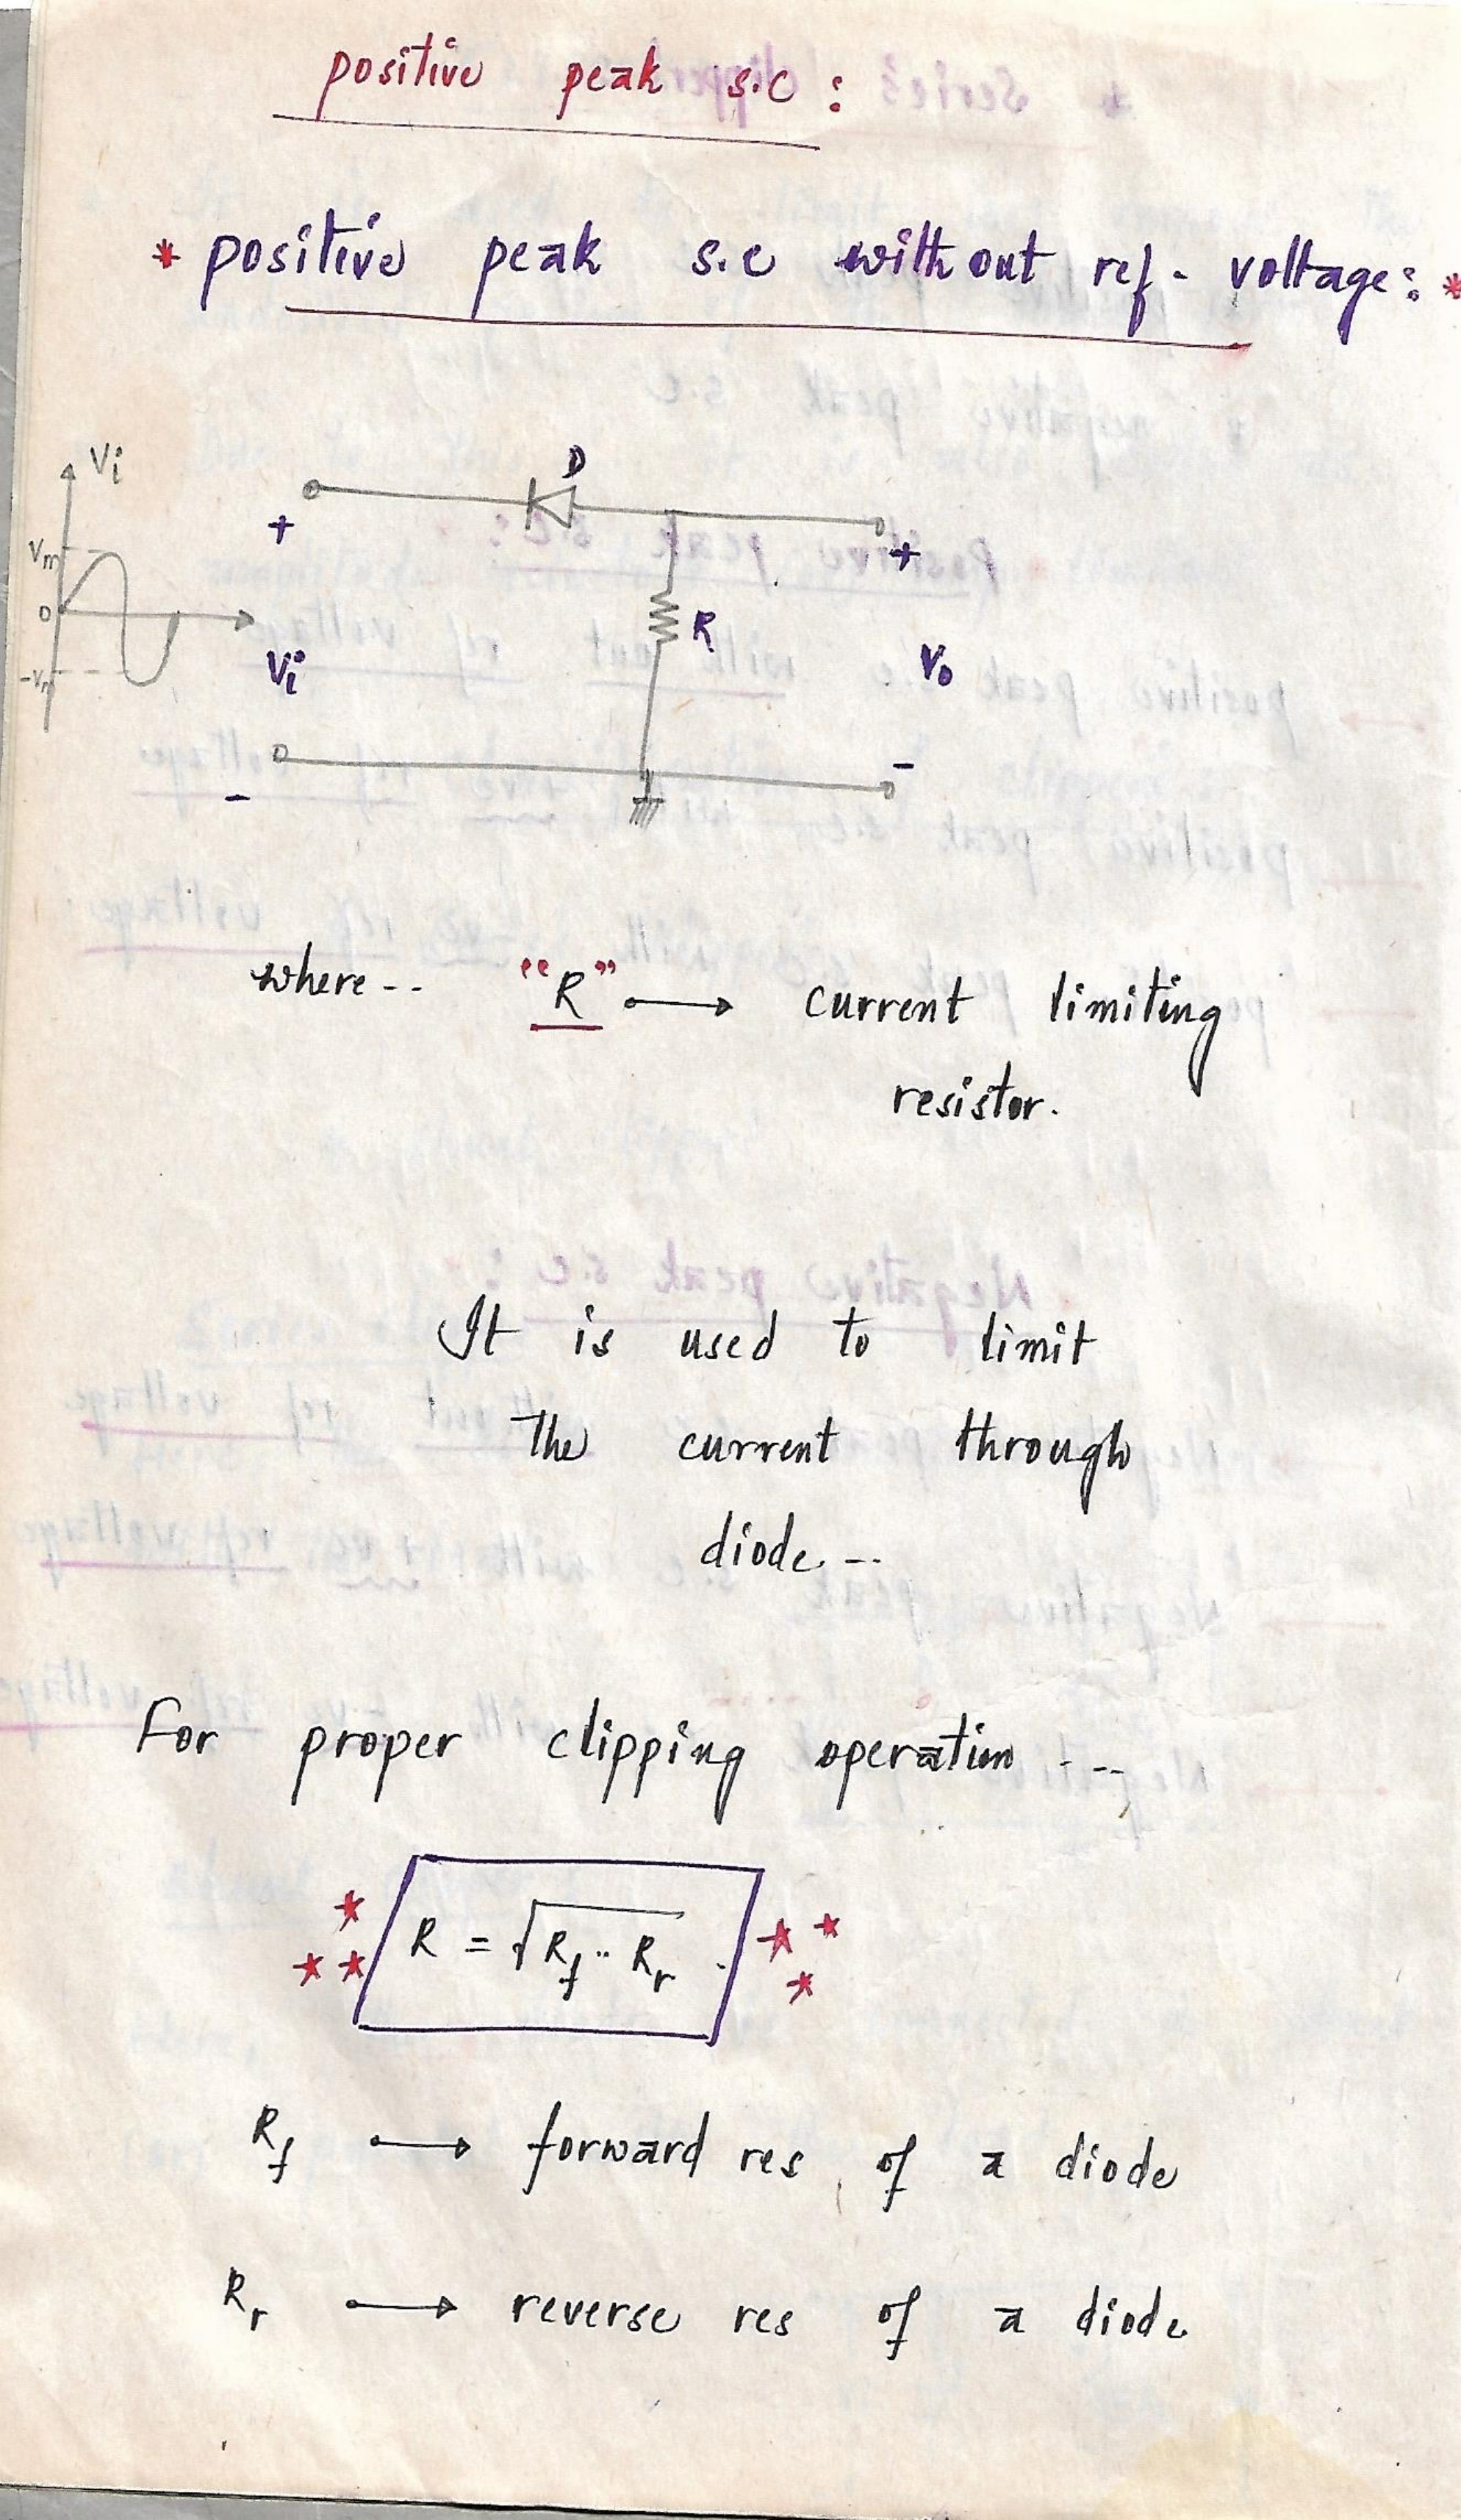 positive peak s.c :
* positive peak s.c without ref- voltage: *
Vi
D
+
+
Vm
0
R
Vi
Vo
-Vm
-
-
where-- "R" → current limiting
resistor.
It is used to limit
the current through
diode --
For proper clipping operation ---,
R = √Rf·· Rr .
Rf → forward res of a diode
Rr → reverse res of a diode